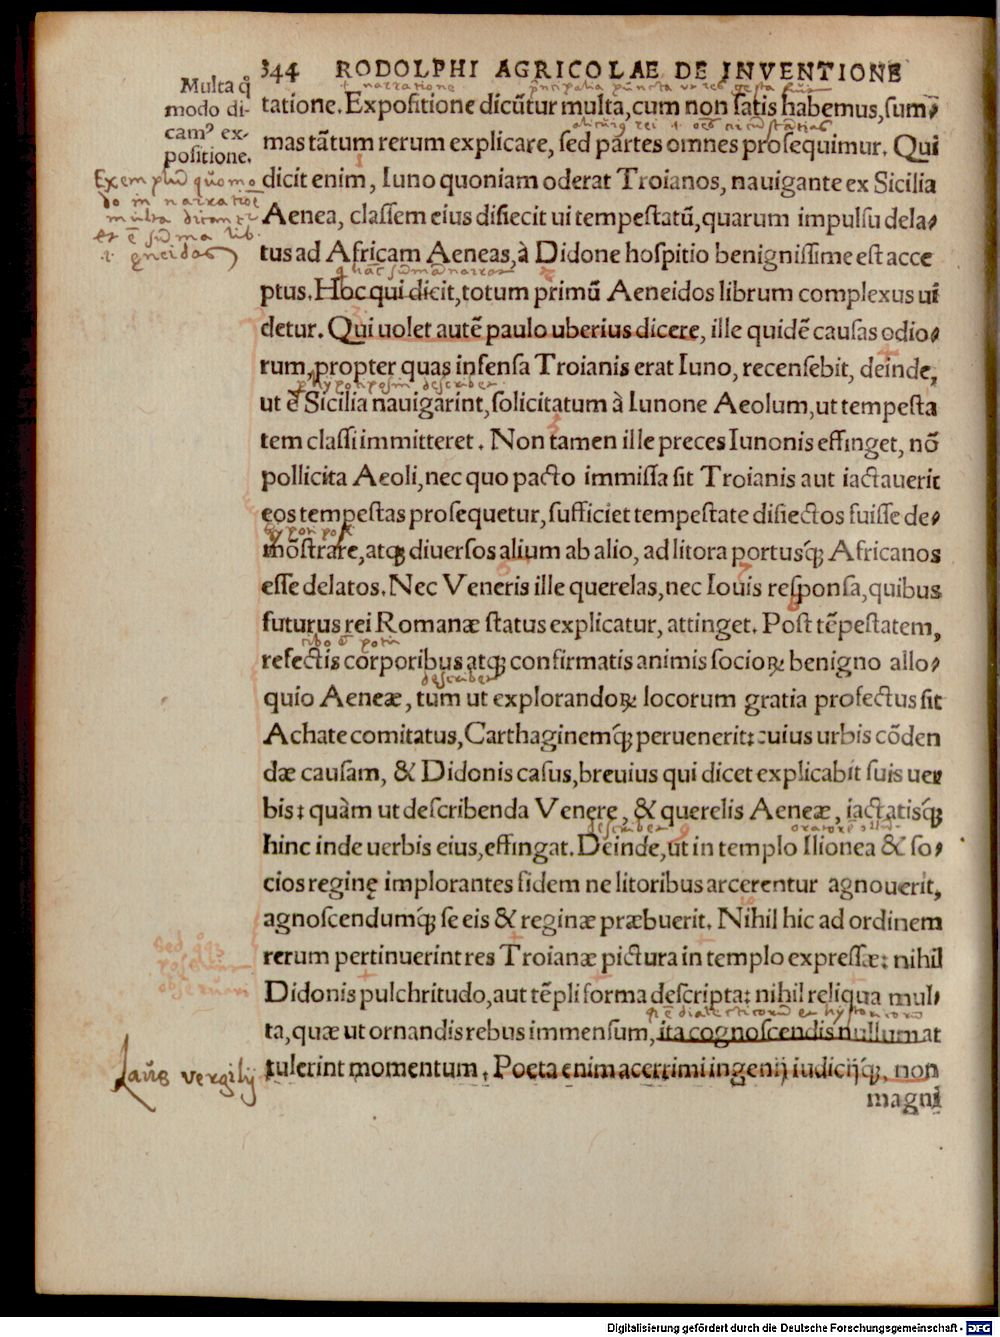 344 RODOLPHI AGRICOLAE DE INVENTIONE
Multa q̊
modo di-
camꝰ ex-
positione.
tatione. Expositione dicūtur multa, cum non satis habemus, sum⸗
mas tātum rerum explicare, sed partes omnes prosequimur. Qui
dicit enim, Iuno quoniam oderat Troianos, nauigante ex Sicilia
Aenea, classem eius disiecit ui tempestatū, quarum impulsu dela⸗
tus ad Africam Aeneas, à Didone hospitio benignissime est acce
ptus. Hoc qui dicit, totum primū Aeneidos librum complexus ui
detur. Qui uolet autē paulo uberius dicere, ille quidē causas odio⸗
rum, propter quas infensa Troianis erat Iuno, recensebit, deinde,
ut ē Sicilia nauigarint, solicitatum à Iunone Aeolum, ut tempesta
tem classi immitteret. Non tamen ille preces Iunonis effinget, nō
pollicita Aeoli, nec quo pacto immissa sit Troianis aut iactauerit
eos tempestas prosequetur, sufficiet tempestate disiectos fuisse de⸗
mōstrare, atq; diuersos alium ab alio, ad litora portusq́; Africanos
esse delatos. Nec Veneris ille querelas, nec Iouis responsa, quibus
futurus rei Romanæ status explicatur, attinget. Post tēpestatem,
refectis corporibus atq; confirmatis animis socioꝝ benigno allo⸗
quio Aeneæ, tum ut explorandoꝝ locorum gratia profectus sit
Achate comitatus, Carthaginemq́; peruenerit: cuius urbis cōden
dæ causam, & Didonis casus, breuius qui dicet explicabit suis uer
bis: quàm ut describenda Venere, & querelis Aeneæ, iactatisq́;
hinc inde uerbis eius, effingat. Deinde, ut in templo Ilionea & so⸗
cios reginę implorantes fidem ne litoribus arcerentur agnouerit,
agnoscendumq́; se eis & reginæ præbuerit. Nihil hic ad ordinem
rerum pertinuerint res Troianæ pictura in templo expressæ: nihil
Didonis pulchritudo, aut tēpli forma descripta: nihil reliqua mul⸗
ta, quæ ut ornandis rebus immensum, ita cognoscendis nullum at
tulerint momentum. Poeta enim acerrimi ingenij iudicijq́;, non
magni
Exemplū quōmo
do in narratiōe
multa dicantr
et ē sūma lib.
1 ęneidos
Laus vergilij
Digitalisierung gefördert durch die Deutsche Forschungsgemeinschaft - DFG